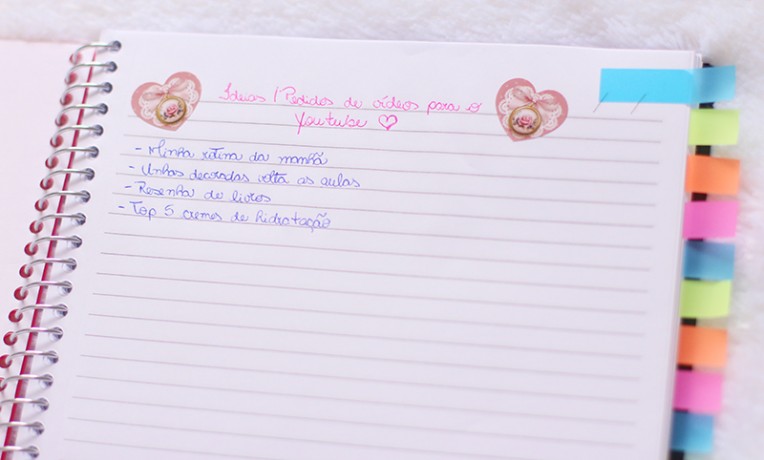 Ideias / Pedidos de vídeos para o
Youtube ♡
- Minha rotina da manhã
- Unhas decoradas volta as aulas
- Resenha de livros
- Top 5 cremes de hidratação